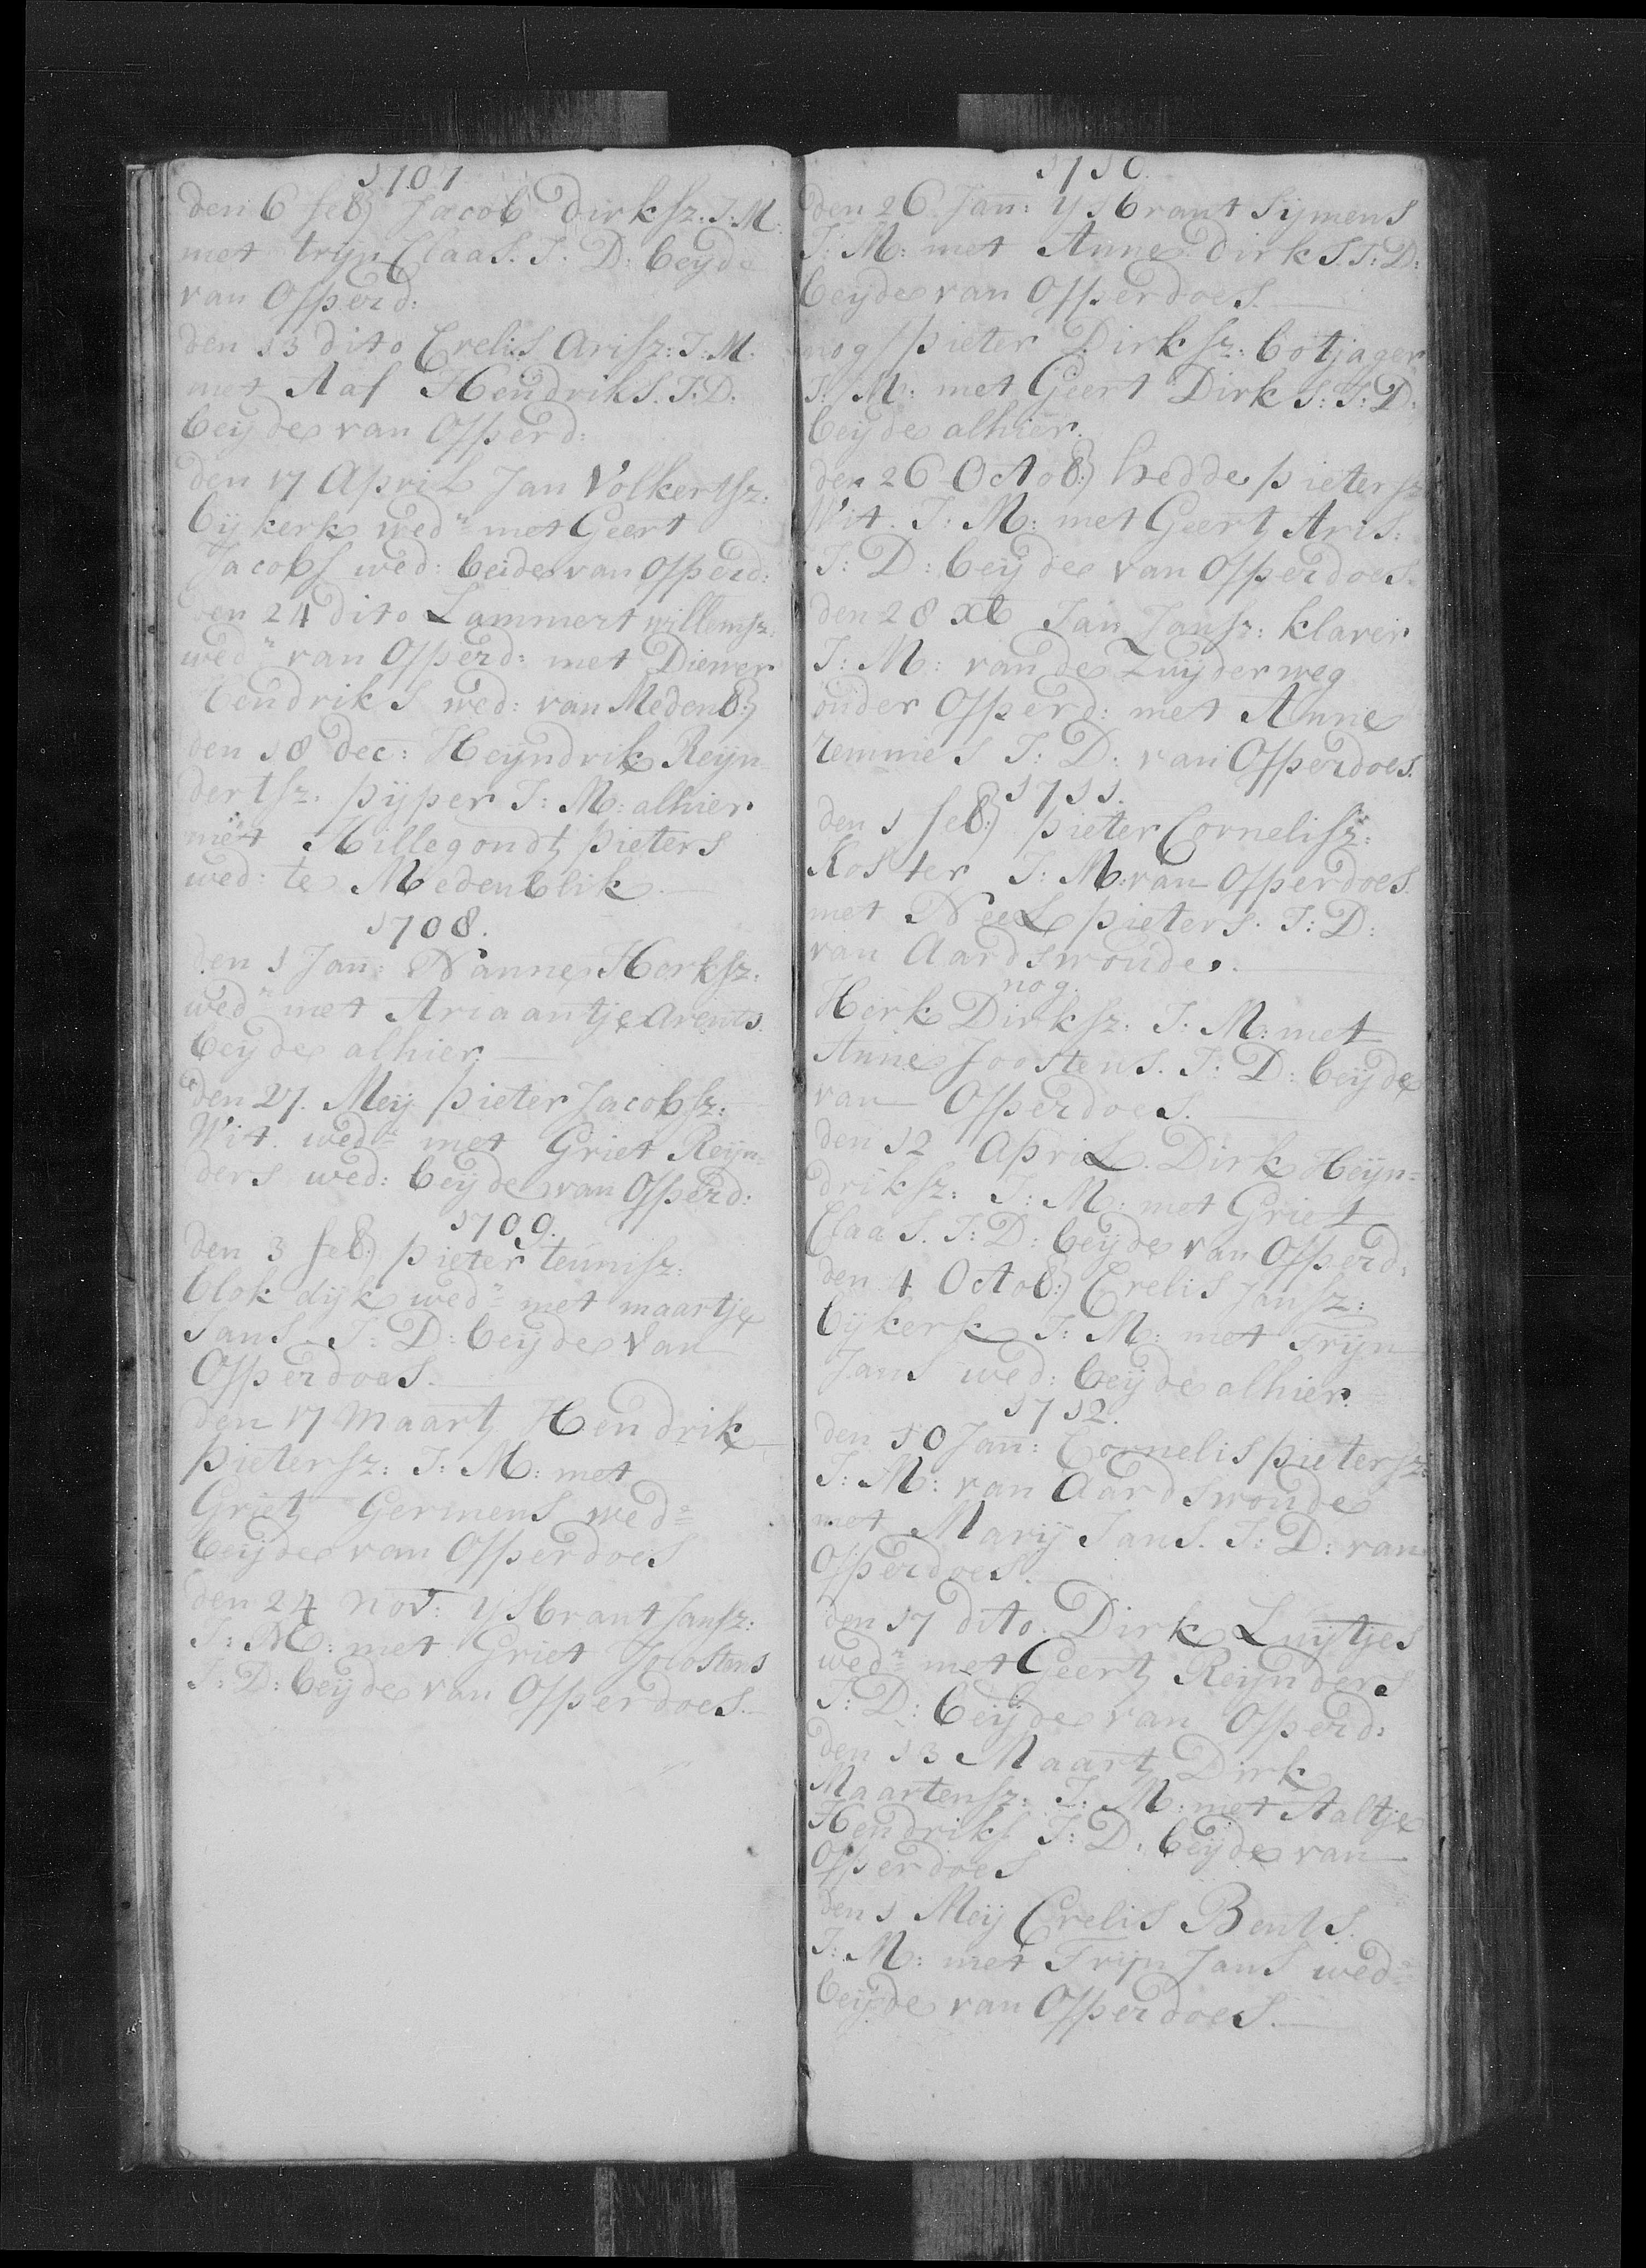 1707
den 6 feb:) Jacob dirksz. J: M:
met tryn Claas. J. D: beyde
van Opperd:
den 13 dito Crelis Arisz: J: M:
met Aaf Hendriks. J: D:
beyde van Opperd:
den 17 April Jan Volkertsz:
bykerk wedr met Geert
Jacobs wed: beide van Opperd:
den 24 dito Lammert willemsz
wedr van Opperd: met Diewer
hendriks wed: van Medenb:)
den 18 dec: Heyndrik Reyn
dertsz. pyper J: M: alhier
met Hillegondt pieters
wed: te Medenblik.
1708.
den 1 Jan: Nanne Herksz:
wedr met Ariaantje Arents
beyde alhier.
den 27. Mey pieter Jacobsz:
Wit. wedr met Griet Reyn=
ders wed: beyde van Opperd:
1709.
den 3 feb:) pieter teunisz:
blok dijk wedr met maartje
Jans. J: D: beyde van
Opperdoes.
den 17 maart Hendrik
pietersz: J: M: met
Griet Germens wed=
beyde van Opperdoes
den 24 nov: ysbrant Jansz:
J: M: met Griet Joostens
J: D: beyde van Opperdoes.
1710.
den 26 Jan: ysbrant Sijmens
J: M: met Anne dirks. J: D:
beyde van Opperdoes.
nog pieter Dirksz: botjager
J: M: met Geert Dirks: J: D:
beyde alhier.
den 26 Octob:) hedde pietersz
Wit. J: M: met Geert Aris:
J: D: beyde van Opperdoes.
den 28 xb Jan Jansz: klaver
J: M: van de Zuyderweg
onder Opperd: met Anne
remmes J: D: van Opperdoes.
1711.
den 1 feb:) pieter Cornelisz:
Koster J: M: van Opperdoes.
met Neel pieters. J: D:
van Aardswoude.
nog.
Herk Dirksz. J: M: met
Anne Joostens. J: D: beyde
van Opperdoes.
den 12 April. Dirk Heyn=
driksz: J: M: met Griet
Claas. J: D: beyde van Opperd:
den 4 Octob:) Crelis Jansz:
bykerk J: M: met Tryn
Jans wed: beyde alhier.
1712.
den 10 Jan: Cornelis pietersz:
J: M: van Aardswoude
met Mary Jans. J: D: van
Opperdoes.
den 17 dito. Dirk Luytjes
wedr met Geert Reynders
J: D: beyde van Opperd:
den 13 Maart Dirk
Maartensz: J: M: met Aaltje
Hendriks J: D: beyde van
Opperdoes
den 1 Mey Crelis Bents.
J: M: met Tryn Jans wed=
beyde van Opperdoes.